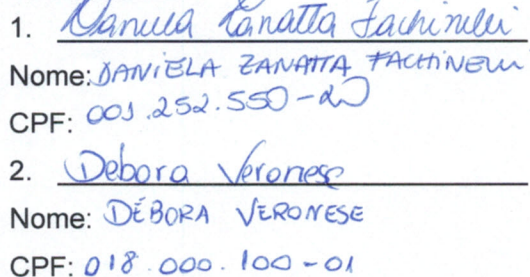 1. Daniela Zanatta Fachinelli
Nome: DANIELA ZANATTA FACHINELLI
CPF: 001.252.550-20
2. Debora Veronese
Nome: DÉBORA VERONESE
CPF: 018.000.100-01